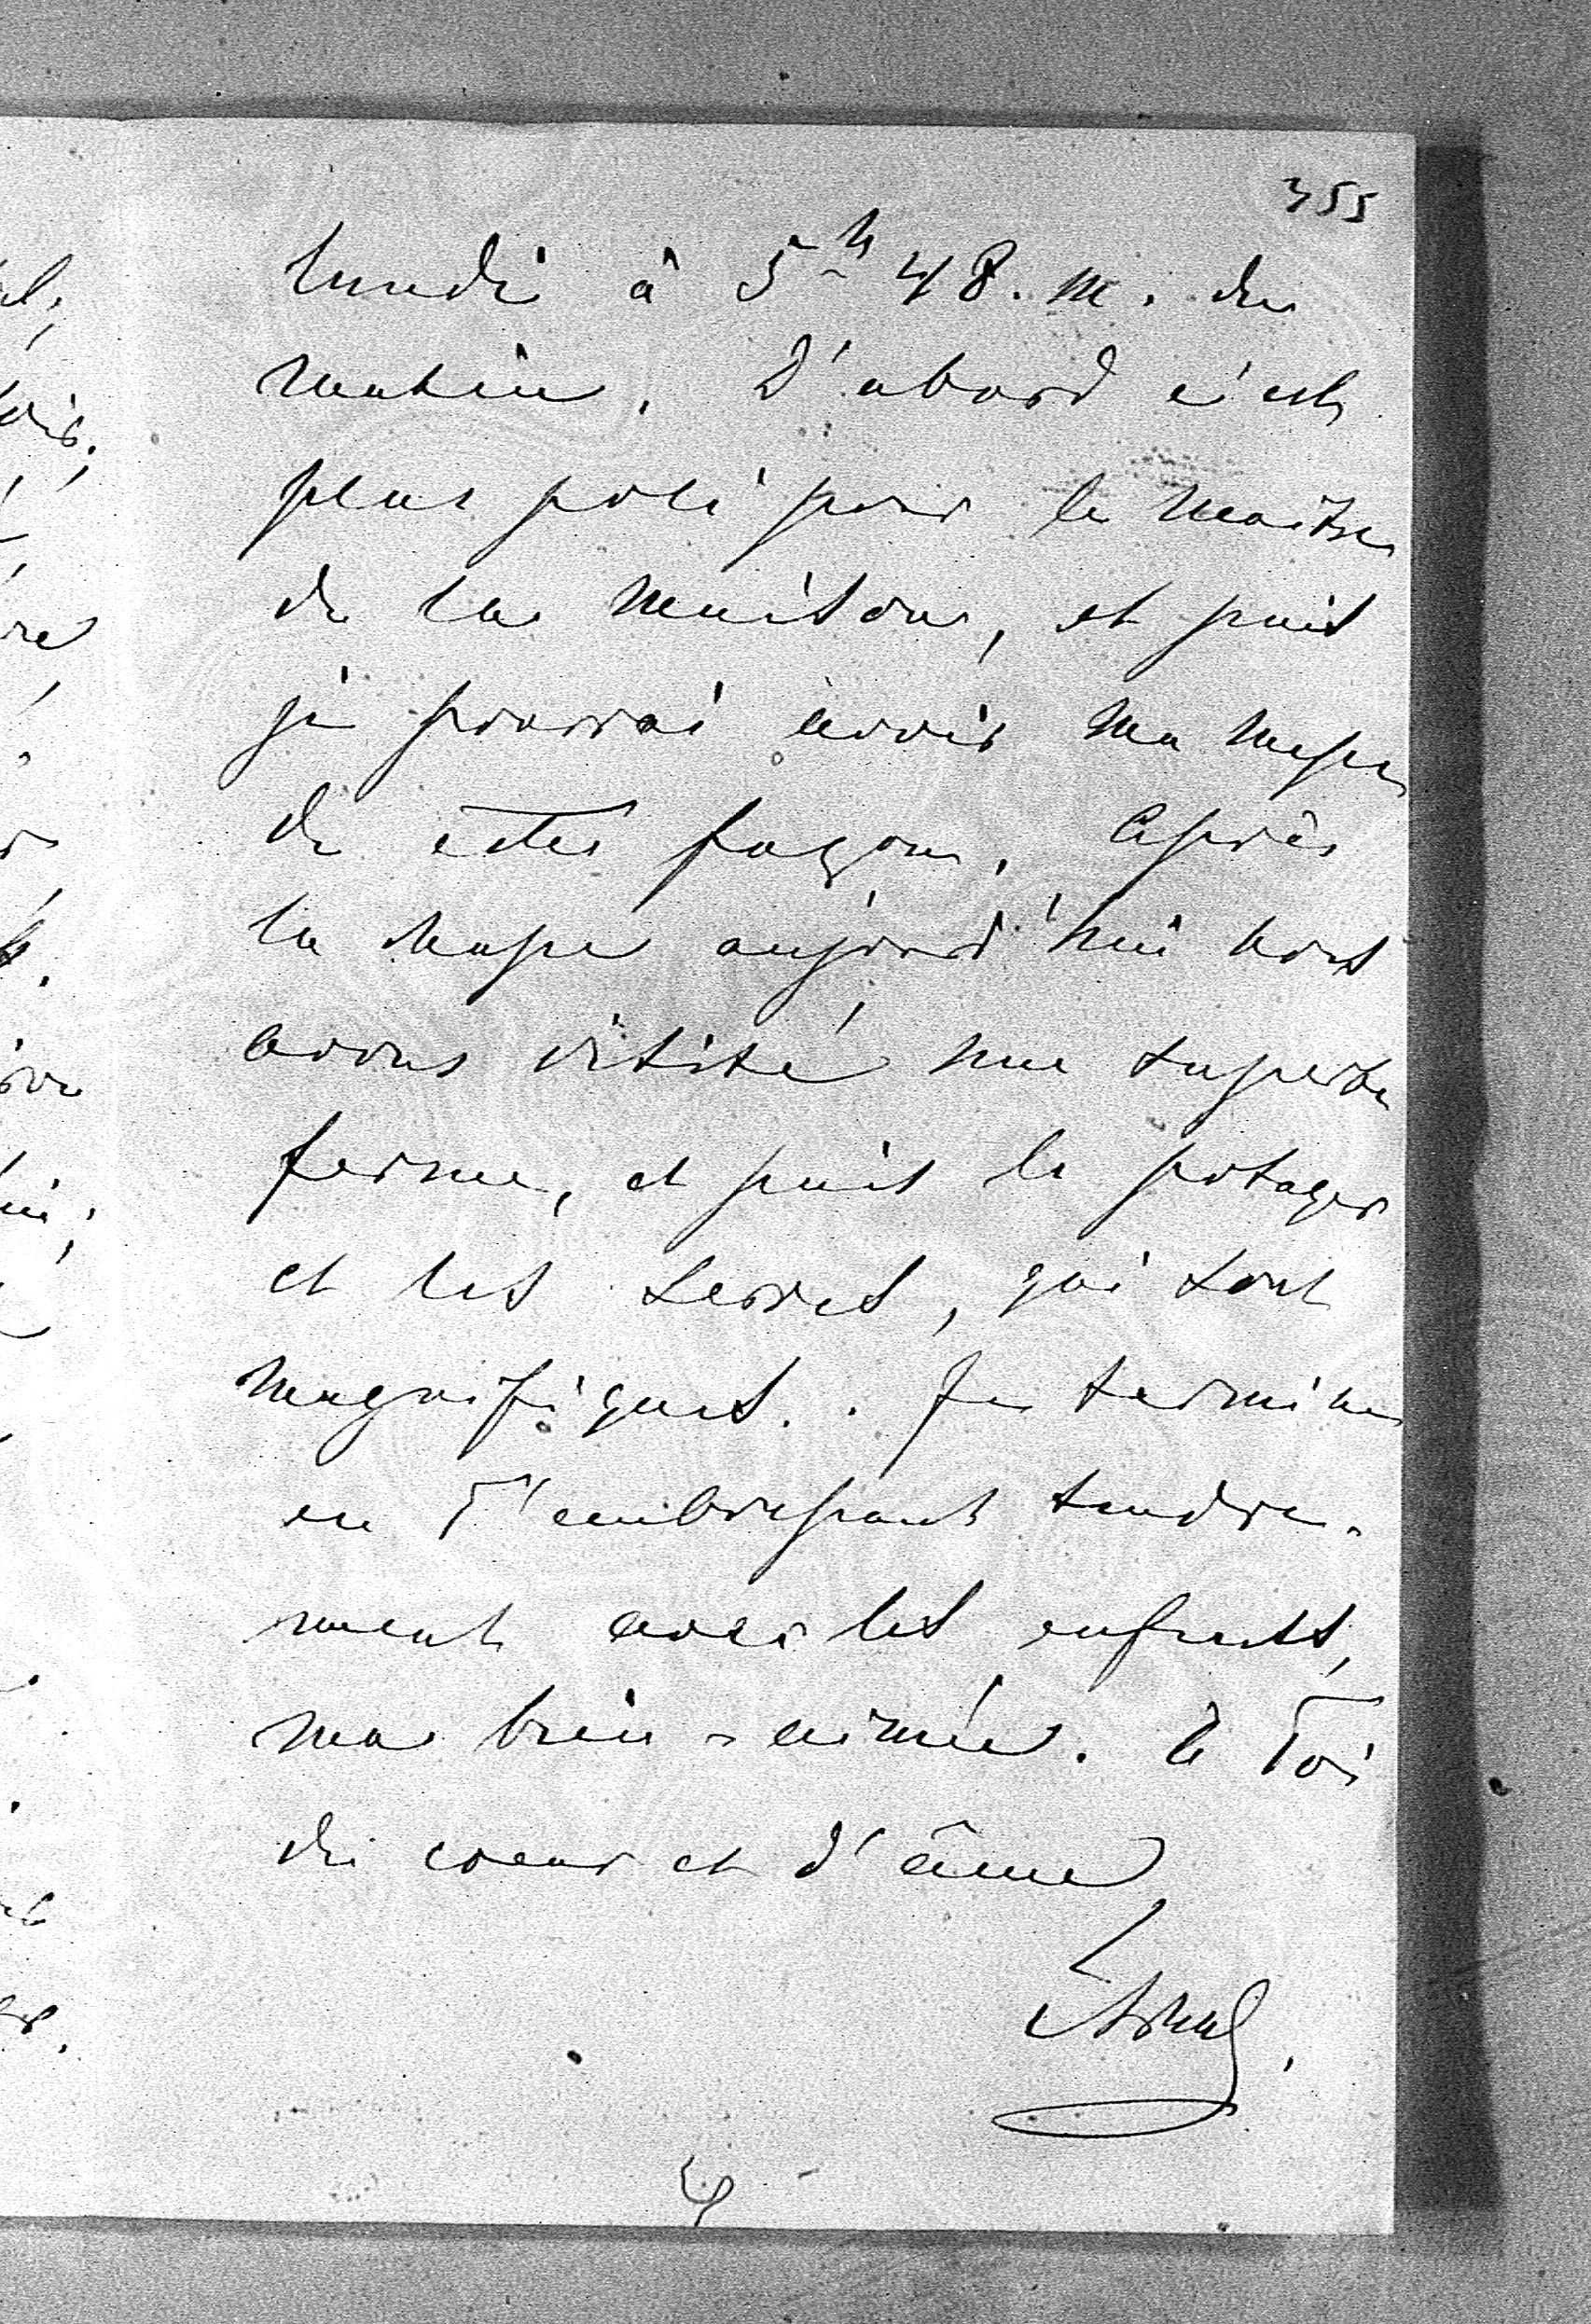 355
lundi à 5h 48. m. du
matin. D'abord c'est
plus poli pour le maître
de la maison, et puis
je pourrai avoir ma messe
de cette façon. Après
la messe aujourd'hui nous
avons visité une superbe
ferme, et puis le potager
et les serres, qui sont
magnifiques. . Je termine
en T'embrassant tendre-
ment avec les enfants,
ma bien-aimée. à Toi
de coeur et d'âme